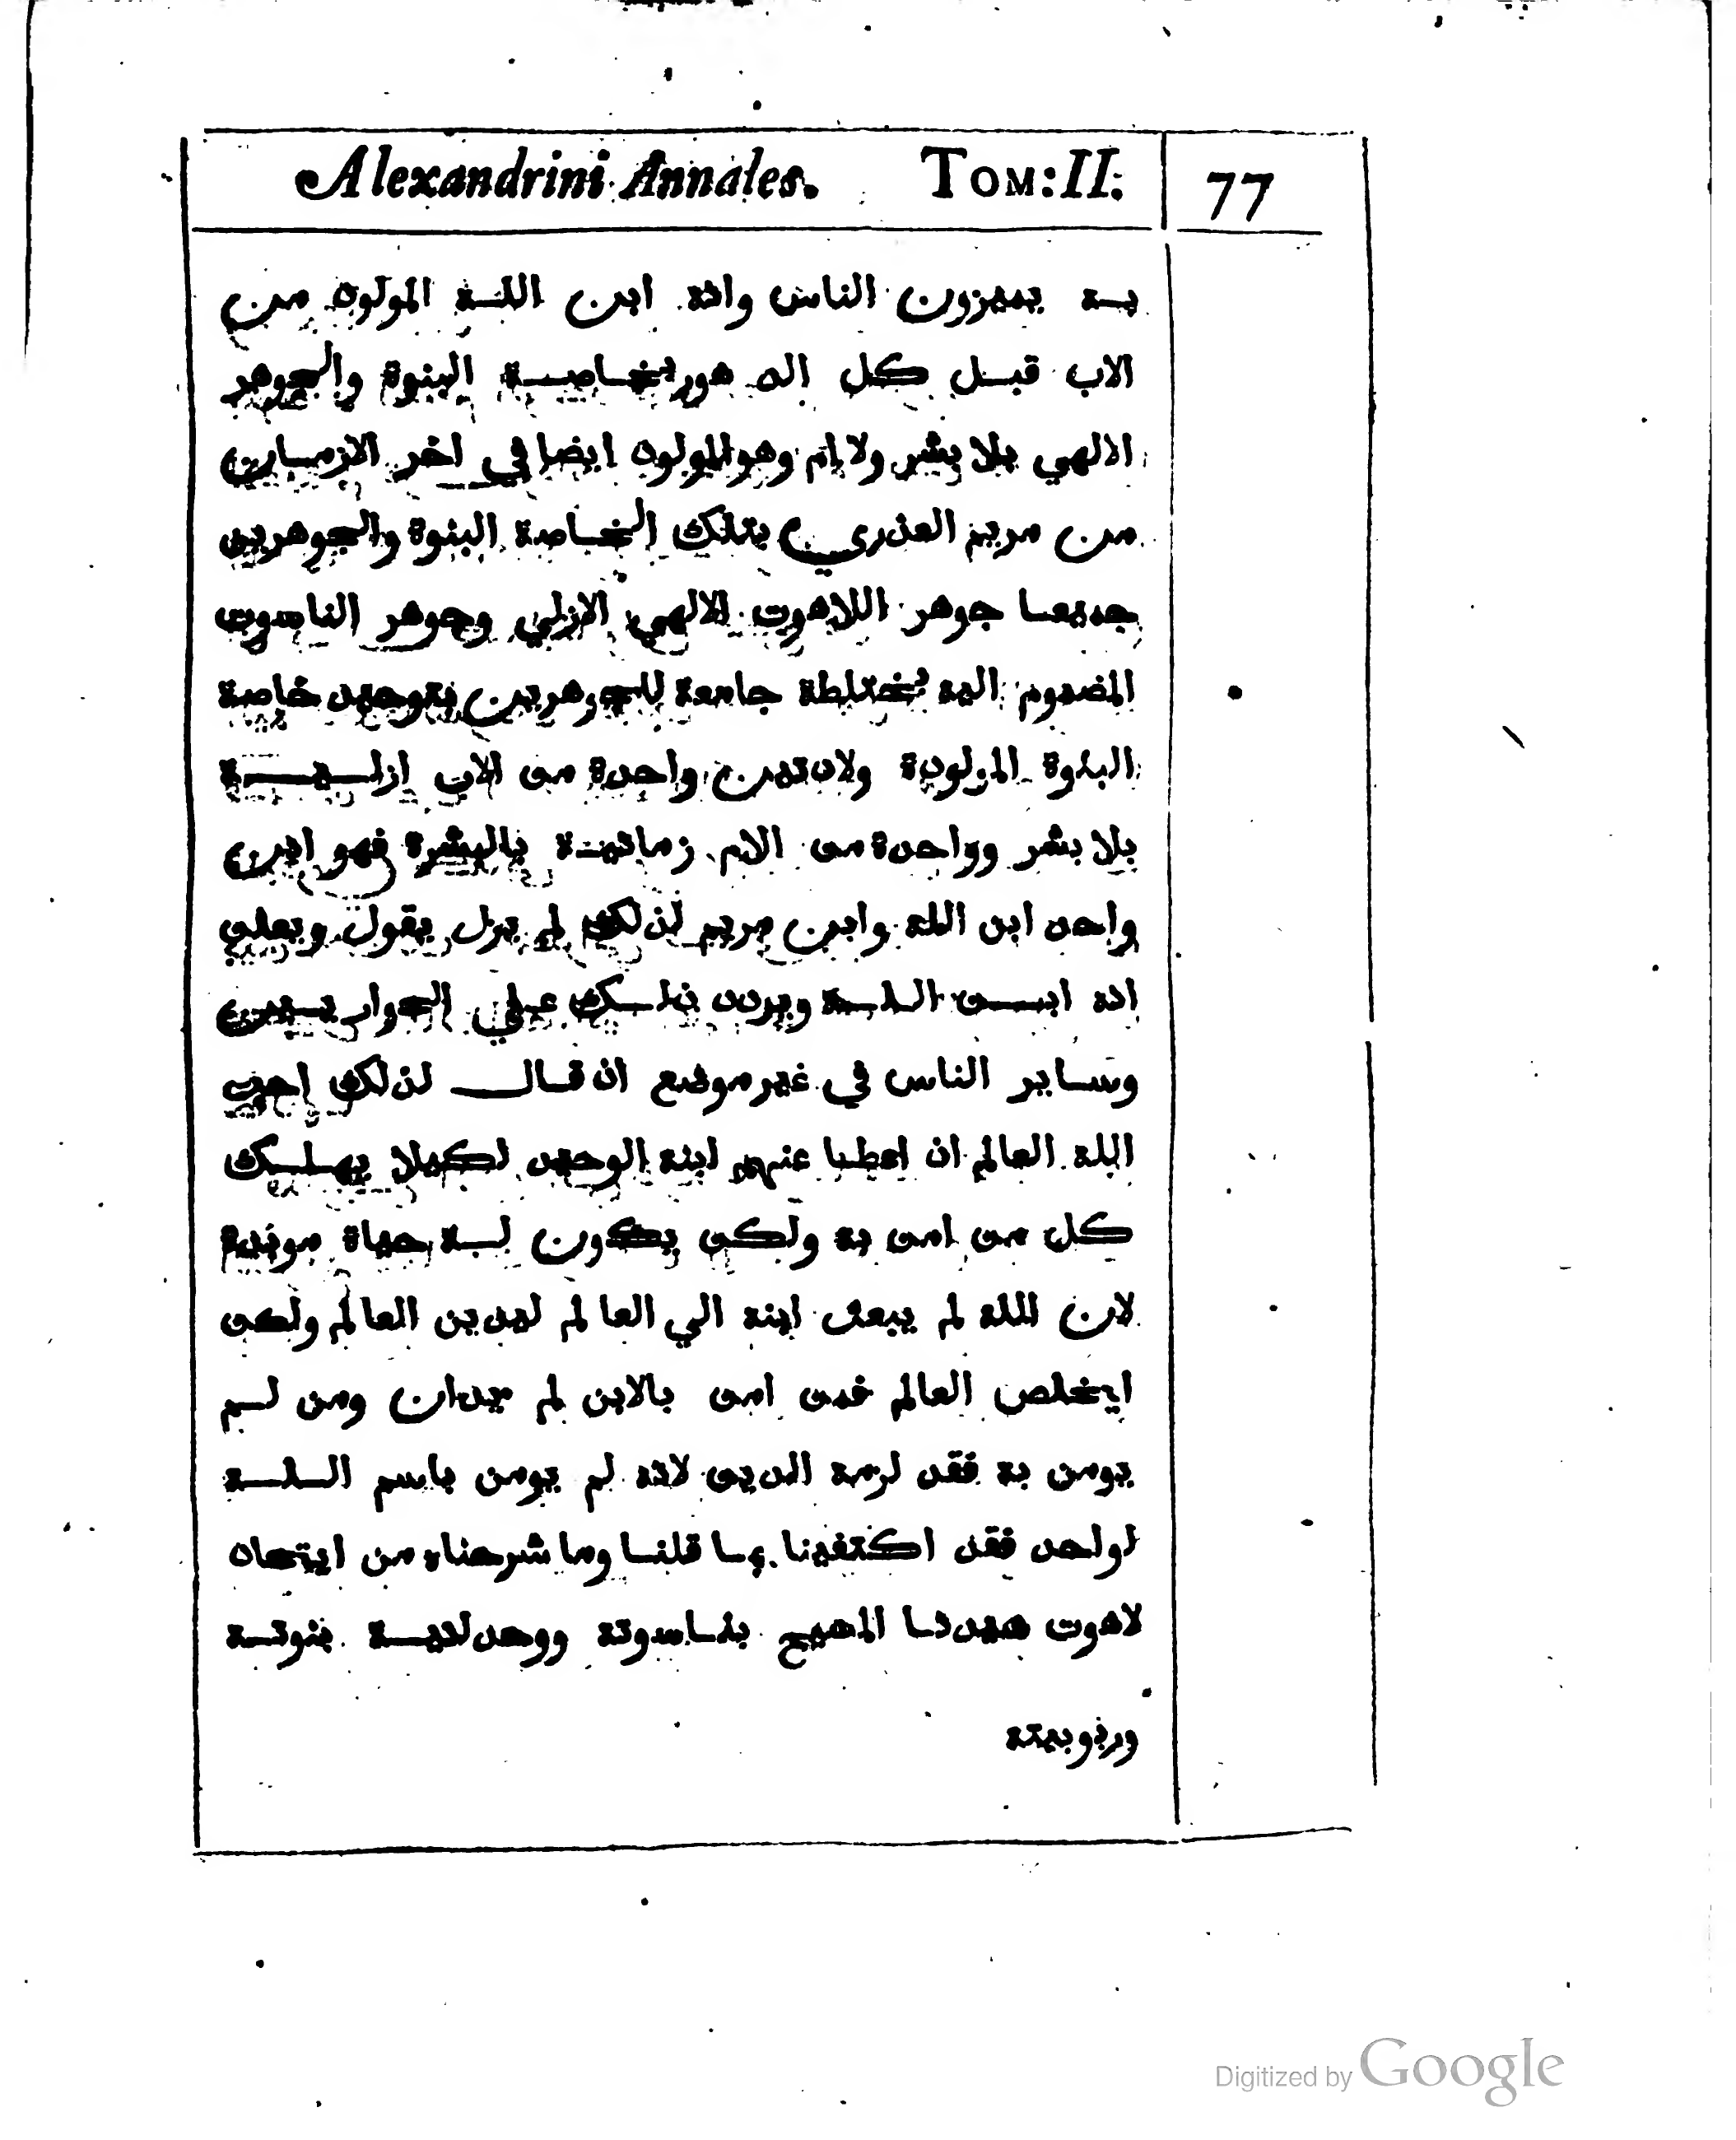 Alexandrini Annales. TOM: II. 77
به يميزون الناس وانه ابن الله المولود من
الاب قبل كل الدهور بخاصية البنوة والجوهر
الالهي بلا بشر ولا ام وهو المولود ايضا في اخر الازمان
من مريم العذري بتلك الخاصة البنوة والجوهرين
جميعا جوهر اللاهوت الالهي الازلي وجوهر الناسوت
المضموم اليه مختلطة جامعة للجوهرين بتوحيد خاصة
البنوة المولودة ولادتين واحدة من الاب ازلية
بلا بشر وواحدة من الام زمانية بالبشرة فهو ابن
واحد ابن الله وابن مريم لذلك لم يزل يقول ويعلم
انه ابن الله ويردد ذلك علي الحواريين
وساير الناس في غير موضع اذ قال لذلك احب
الله العالم ان اعطا عنهم ابنه الوحيد لكيلا يهلك
كل من امن به ولكن يكون له حياة موبدة
لان الله لم يبعث ابنه الي العالم ليدين العالم ولكن
ايخلص العالم فمن امن بالابن لم يدان ومن لم
يومن به فقد لزمه الدين لانه لم يومن باسم الله
لواحد فقد اكتفينا بما قلنا وما شرحناه من ايتحاد
لاهوت سيدنا المسيح بناسوته ووحدانية بنوته
وربوبيته
Digitized by Google